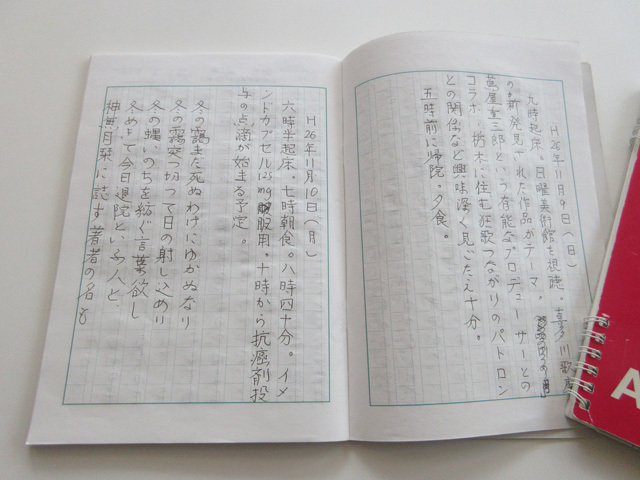 H26年11月9日(日)
九時起床。日曜美術館を視聴。喜多川歌
の新発見された作品がテーマ。
蔦屋重三郎という有能なプロデューサーとの
コラボ、栃木に住む狂歌つながりのパトロン
との関係など興味深く見ごたえ十分。
五時前に帰院。夕食。
H26年11月10日(月)
六時半起床。七時朝食。八時四十分。イメ
ンドカプセル125mg服用。十時から抗癌剤投
与の点滴が始まる予定。
冬の靄まだ死ぬわけにゆかぬなり
冬の靄突つ切つて日の射し込めり
冬の蝿いのちを紡ぐ言葉欲し
冬めよて今日退院といふ人と
神無月栞に記す著者の名も
A